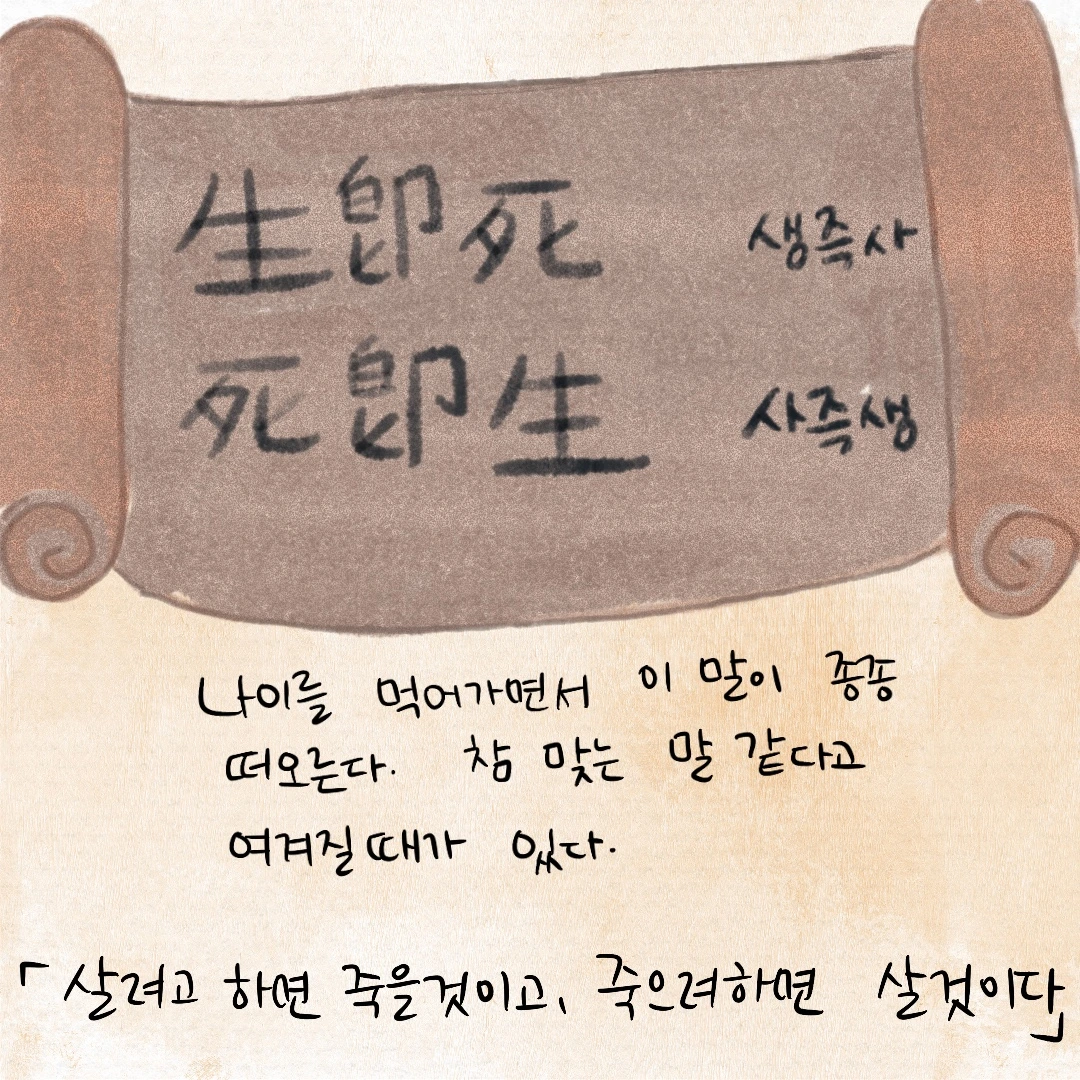 生卽死 생즉사
死卽生 사즉생
나이를 먹어가면서 이 말이 종종
떠오른다. 참 맞는 말 같다고
여겨질때가 있다.
「살려고 하면 죽을것이고, 죽으려하면 살것이다」